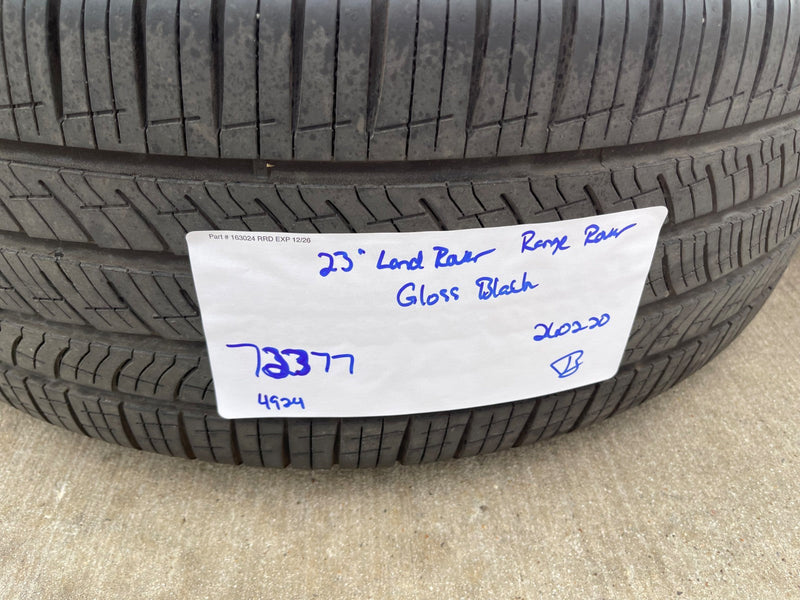 Part # 163024 RRD EXP 12/26
23" Land Rover Range Rover
Gloss Black
260220
73377
4924